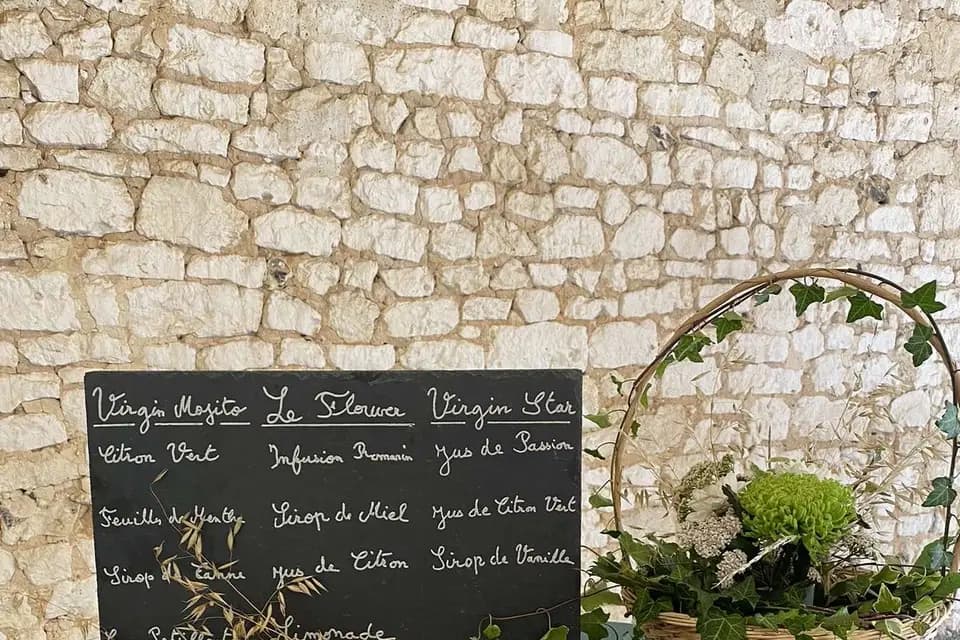 Virgin Mojito
Citron Vert
Feuilles de Menthe
Sirop de Canne
Le Flower
Infusion Romarin
Sirop de Miel
Jus de Citron
Limonade
Virgin Star
Jus de Passion
Jus de Citron Vert
Sirop de Vanille